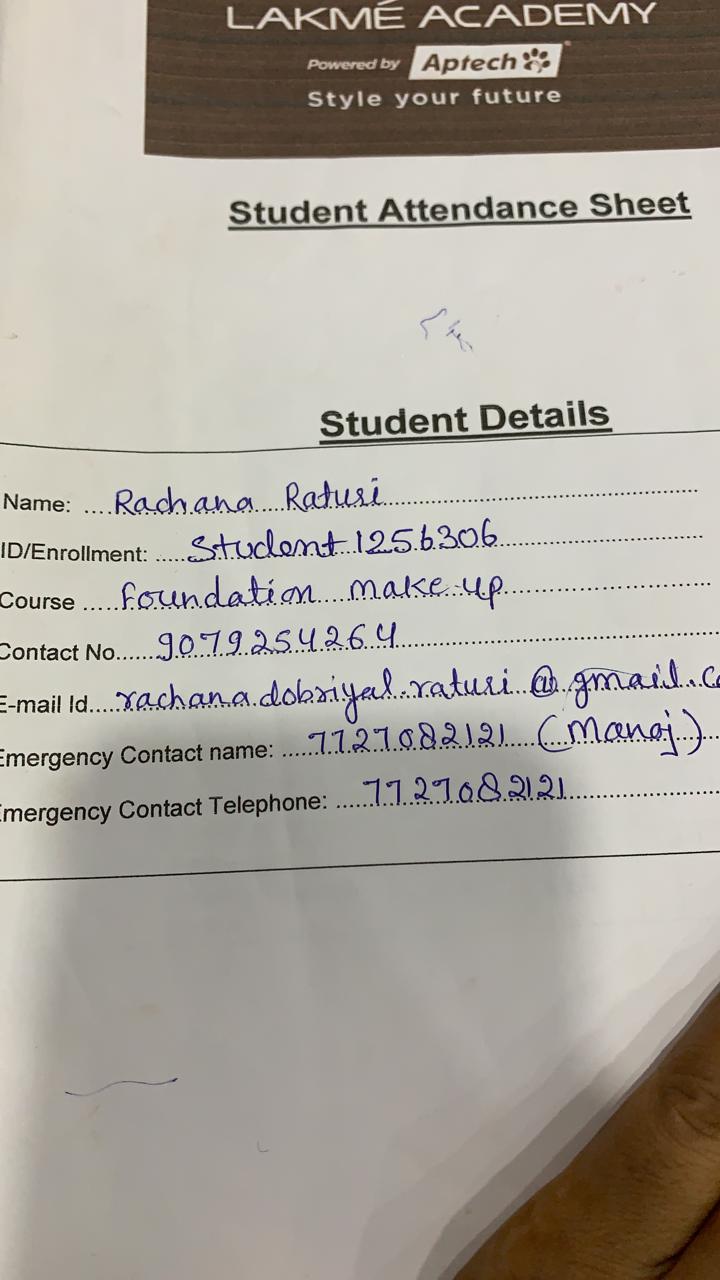 LAKMÉ ACADEMY
Powered by Aptech
Style your future
Student Attendance Sheet
Student Details
Name: ....Rachana Raturi
ID/Enrollment: .....Student1256306
Course .....foundation make-up
Contact No......9079254264
E-mail Id....rachana.dobriyal.raturi@gmail.c
Emergency Contact name: .....7727082121 (Manoj)
Emergency Contact Telephone: ......7727082121